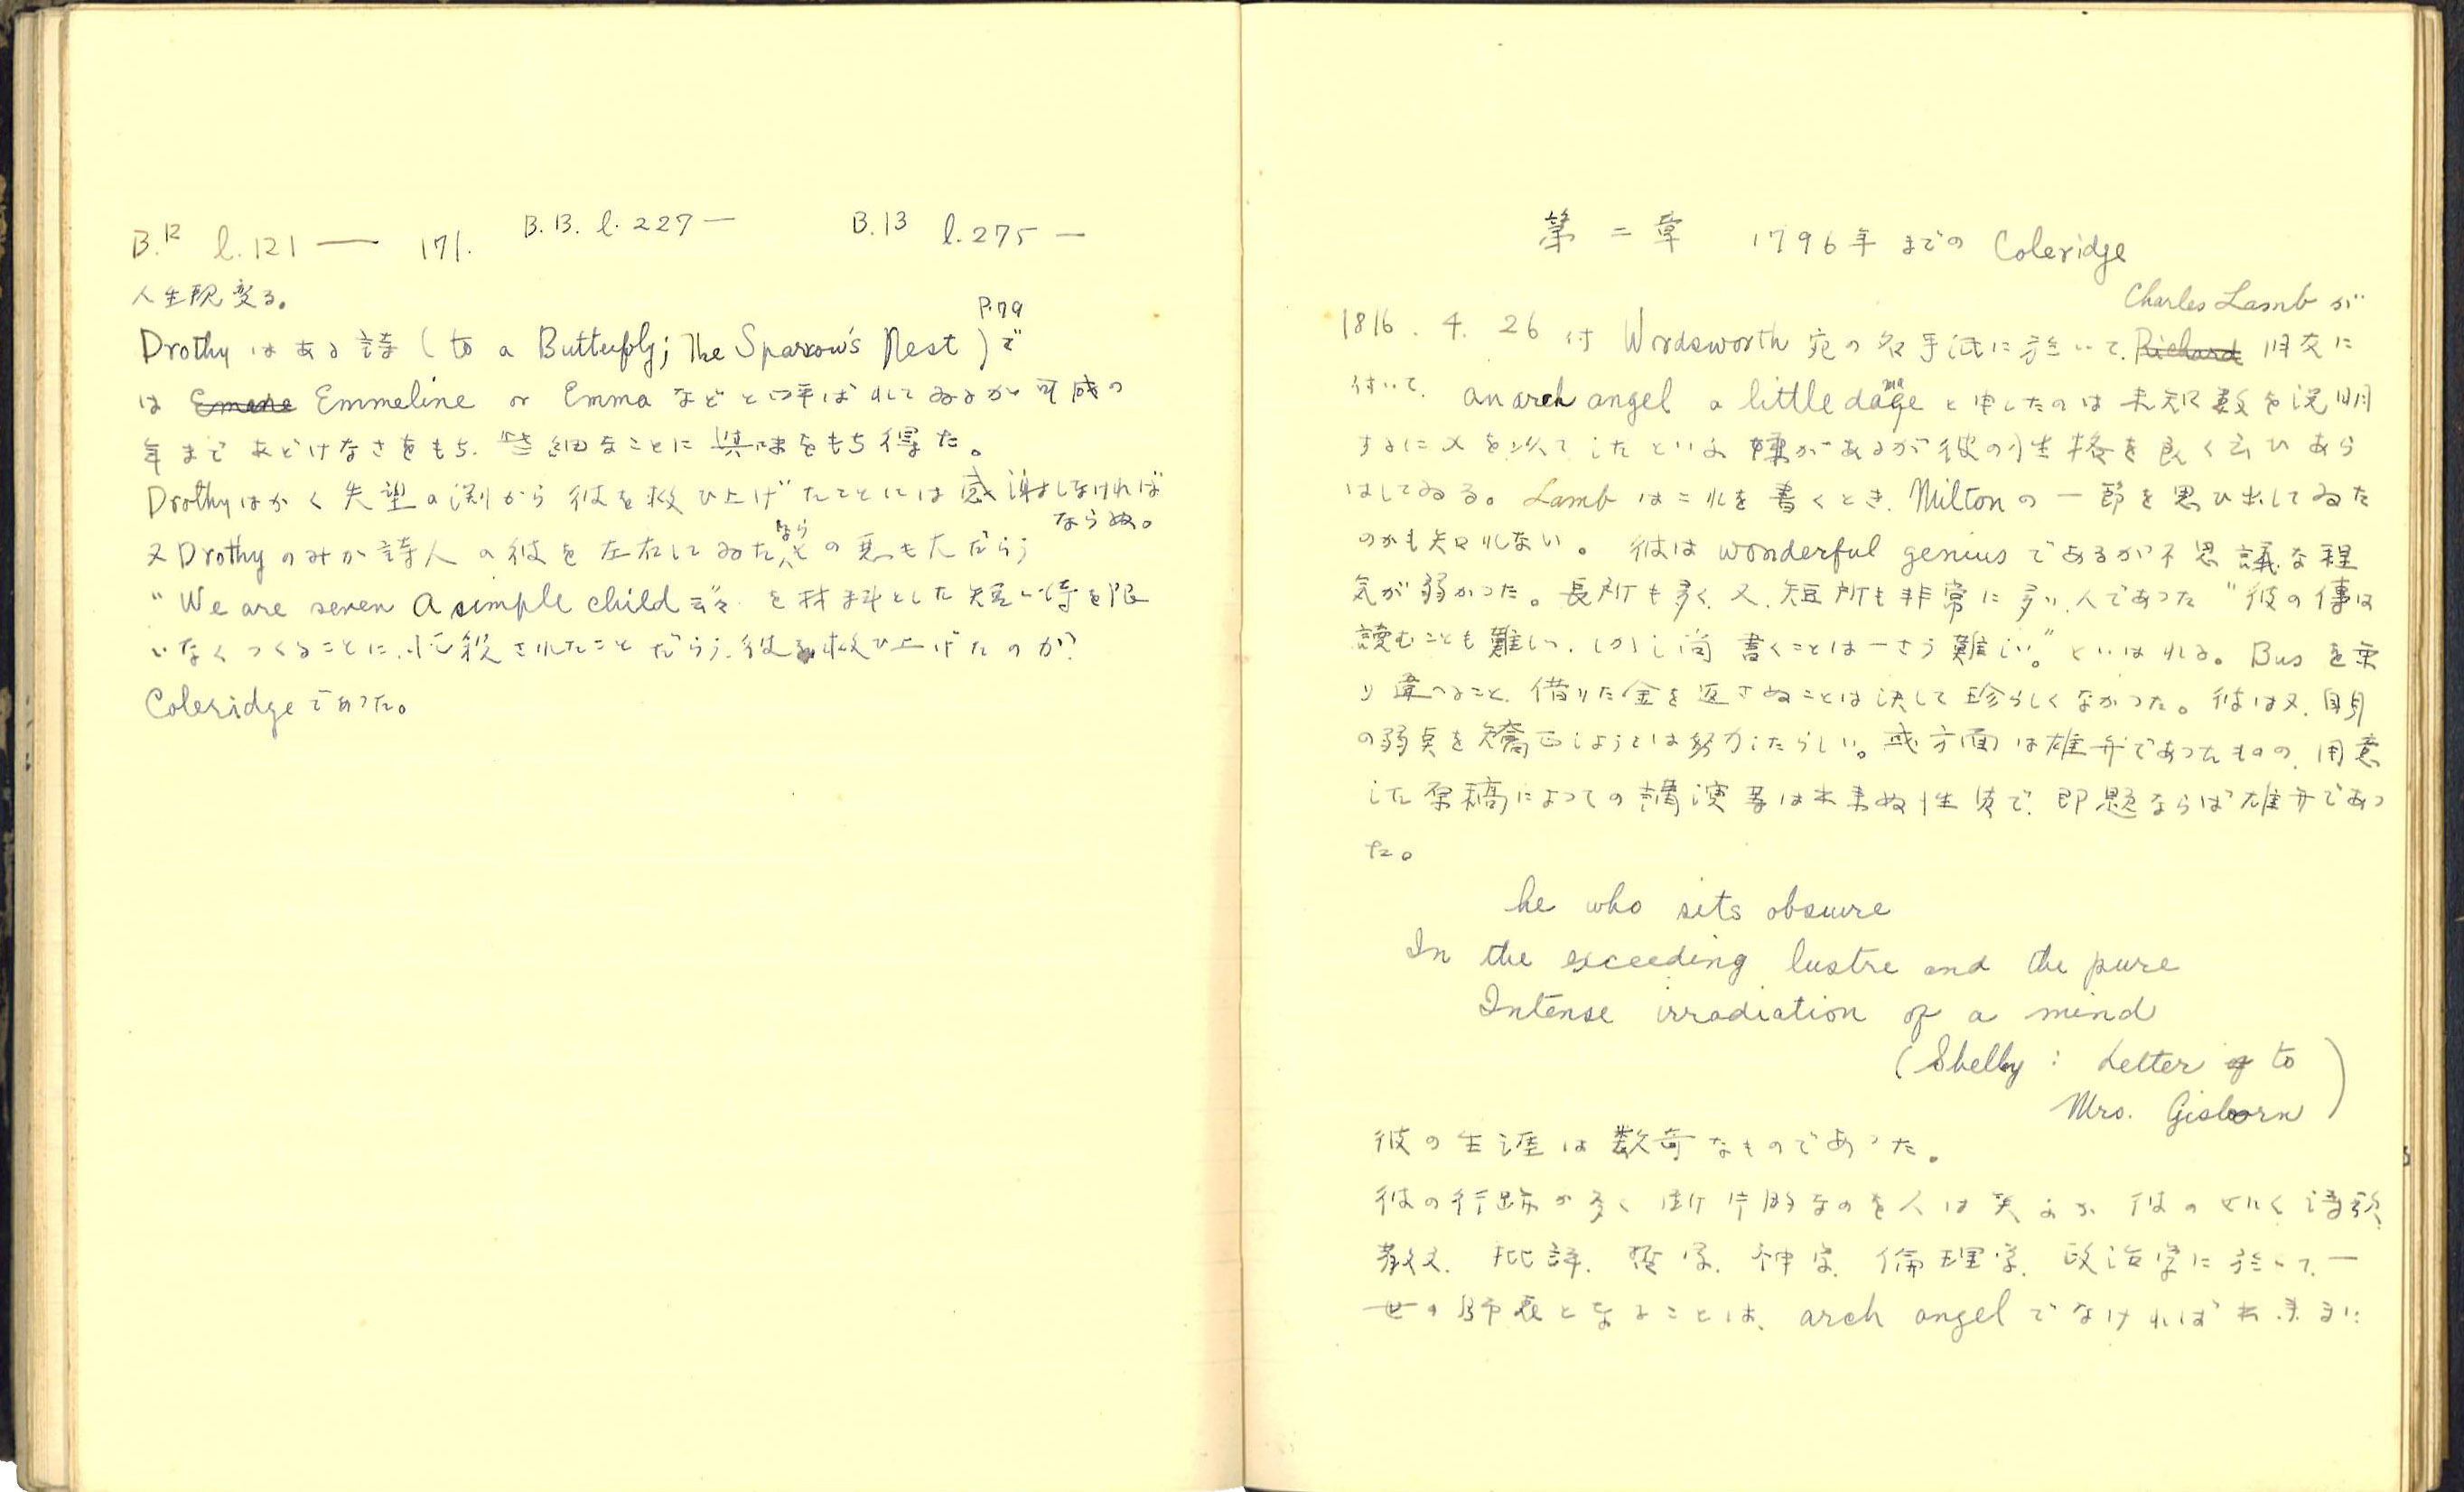 B.12 l.121 ― 171. B.13. l.227 ― B.13 l.275 ―
人生観変る。
P.79
Drothy はある詩 (to a Butterfly; The Sparrow's Nest) で
は Emmeline or Emma などと呼ばれてゐるが可成の
年まであどけなさをもち、些細なことに興味をもち得た。
Drothy はかく失望の淵から彼を救ひ上げたことには感謝しなければ
ならぬ。
又 Drothy のみが詩人の彼を左右してゐたなら その悪も大だらう
"We are seven A simple child 云々" を材料とした短い詩を限
いなくつくることに忙殺されたことだらう。彼を救ひ上げたのが
Coleridge であった。
第二章 1796年までの Coleridge
Charles Lamb が
1816. 4. 26 付 Wordsworth 宛の名手紙に於いて、旧友に
付いて、an arch angel a little damaged と申したのは未知数を説明
するに x を以てしたといふ嫌があるが彼の性格を良く云ひあら
はしてゐる。Lamb はこれを書くとき、Milton の一節を思ひ出してゐた
のかも知れない。彼は wonderful genius であるが不思議な程
気が弱かつた。長所も多く、又、短所も非常に多い人であつた "彼の傳は
読むことも難しい、しかし尚書くことは一さう難しい。" といはれる。Bus を乗
り違へること、借りた金を返さぬことは決して珍らしくなかつた。彼は又、自身
の弱点を矯正しようとは努力したらしい。或方面は雄弁であつたものの、用意
した原稿によつての講演等は出来ぬ性質で、即題ならば雄弁であつ
た。
he who sits obscure
In the exceeding lustre and the pure
Intense irradiation of a mind
(Shelly : Letter to
Mrs. Gisborn)
彼の生涯は数奇なものであつた。
彼の行跡が多く断片的なのを人は笑ふが彼の如く詩歌、
散文、批評、哲学、神学、倫理学、政治学に於いて一
世の師表となることは、arch angel でなければ出来まい